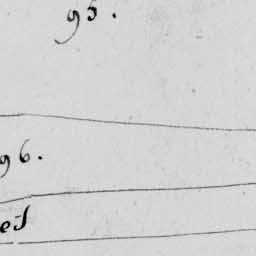 95.
96.